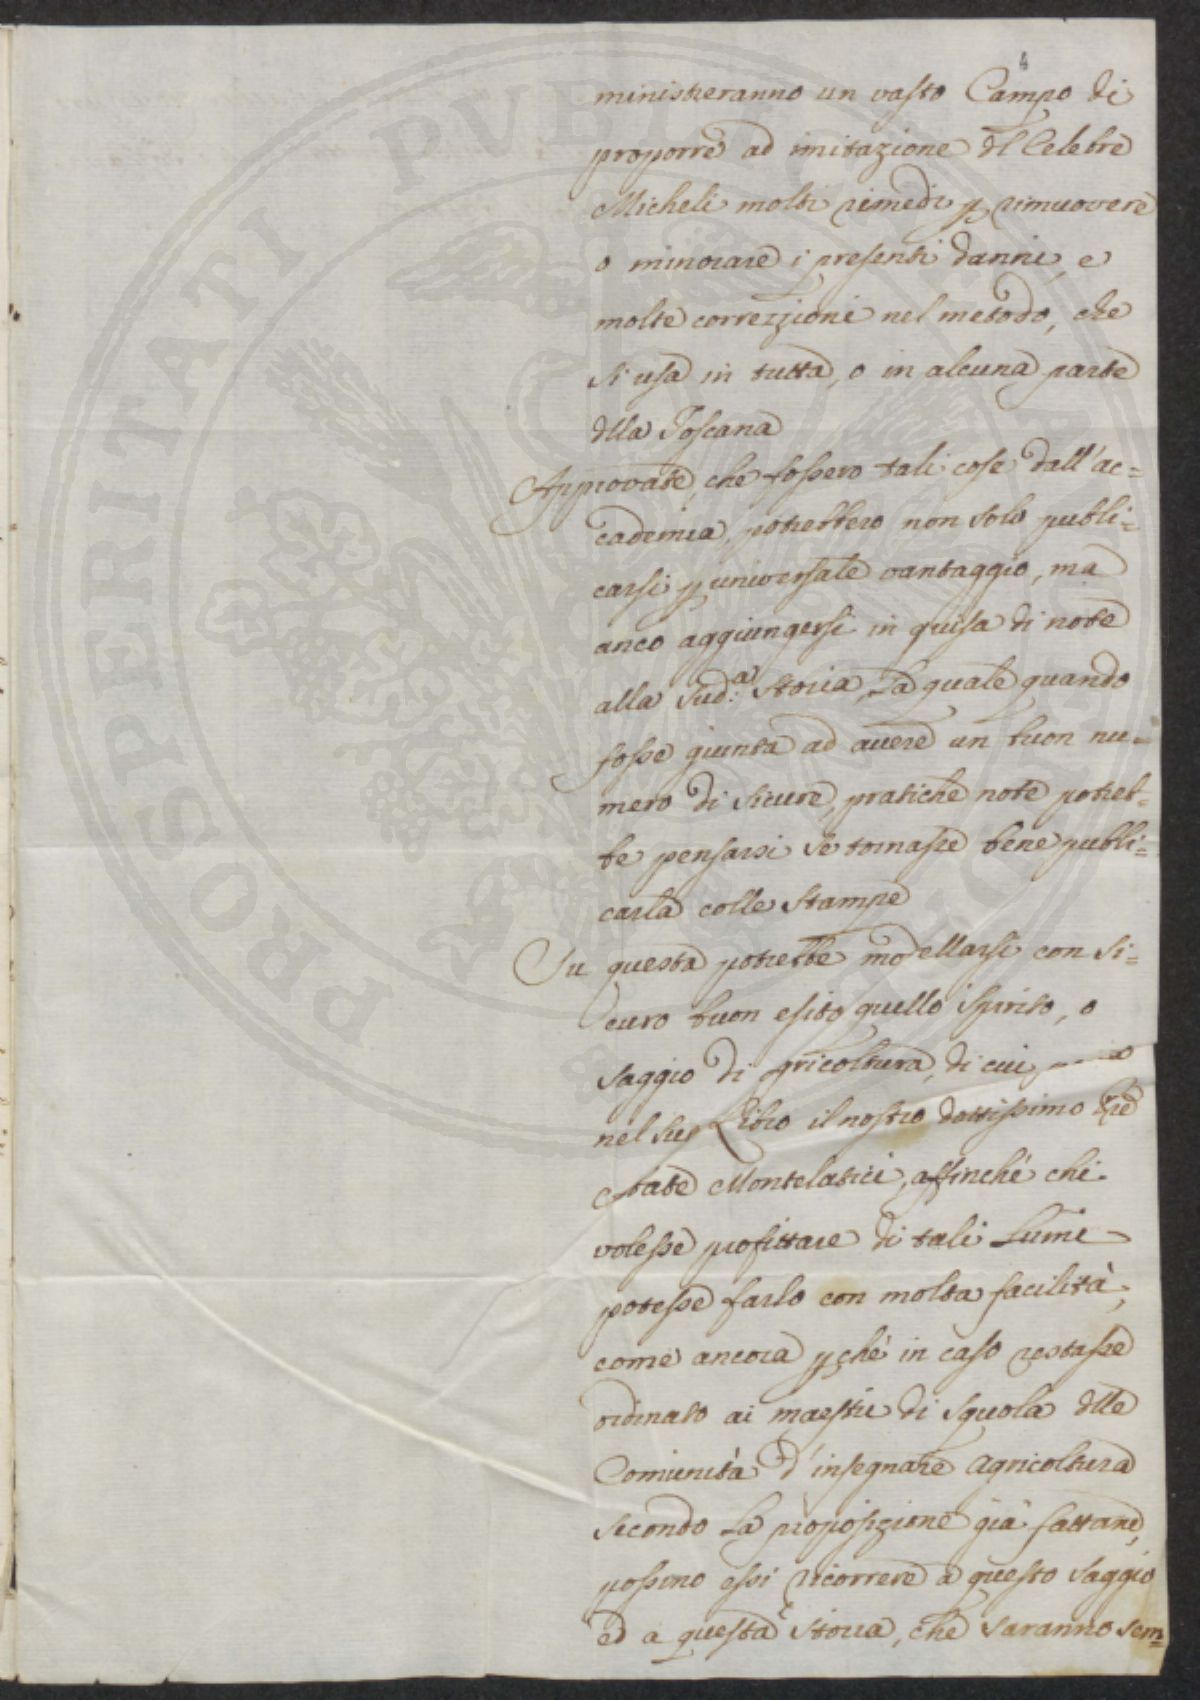 4
ministreranno un vasto Campo di
proporre ad imitazione dl Celebre
Micheli molti rimedi p rimuovere
o minorare i presenti danni, e
molte correzzioni nel metodo, che
si usa in tutta, o in alcuna parte
dlla Toscana
Approvate, che fossero tali cose dall'ac=
cademia, potrebbero non solo publi=
carsi p universale vantaggio, ma
anco aggiungersi in guisa di note
alla sud.a Storia, La quale quando
fosse giunta ad avere un buon nu=
mero di sicure, pratiche note potreb=
be pensarsi se tornasse bene publi=
carla colle stampe
Su questa potrebbe modellarsi con si=
curo buon esito quello spirito, o
saggio di agricoltura, di cui
nel suo Libro il nostro dottissimo Pre
Abate Montelatici, affinché chi
volesse profittare di tali Lumi
potesse farlo con molta facilità,
come ancora pché in caso restasse
ordinato ai maestri di squola dlle
Comiunità d'insegnare agricoltura
secondo La proposizione già fattane,
possino essi ricorrere a questo saggio
ed a questa storia, che saranno sem=
PROSPERITATI PUBLICAE AUGENDAE